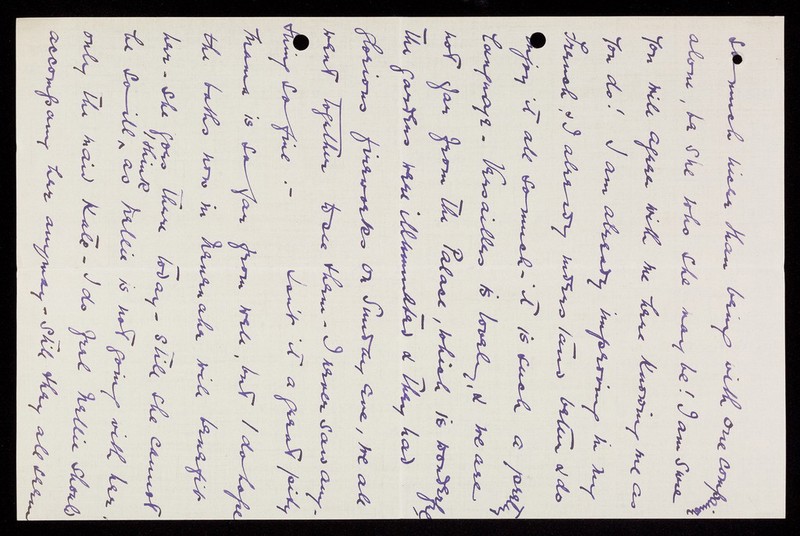 So much nicer than being with one
alone, be she who she may be! I am sure
You will agree with me here knowing me as
You do! I am already improving in my
French, & I already understand better & do
enjoy it all so much - it is such a pretty
language - Versailles is lovely, & we are
not far from the Palace, which is wonderful
The gardens were illuminated & they had
glorious fireworks on Sunday Eve, we all
went together to see them - I never saw any-
thing so fine! - Isn't it a great pity
Mama is so far from well, but I do hope
the baths now in will benefit
her - She goes there today - Still she cannot
be so ill, I think as Nellie is not going with her,
only the maid Kate - I do feel Nellie should
accompany her anyway - Still they all seem